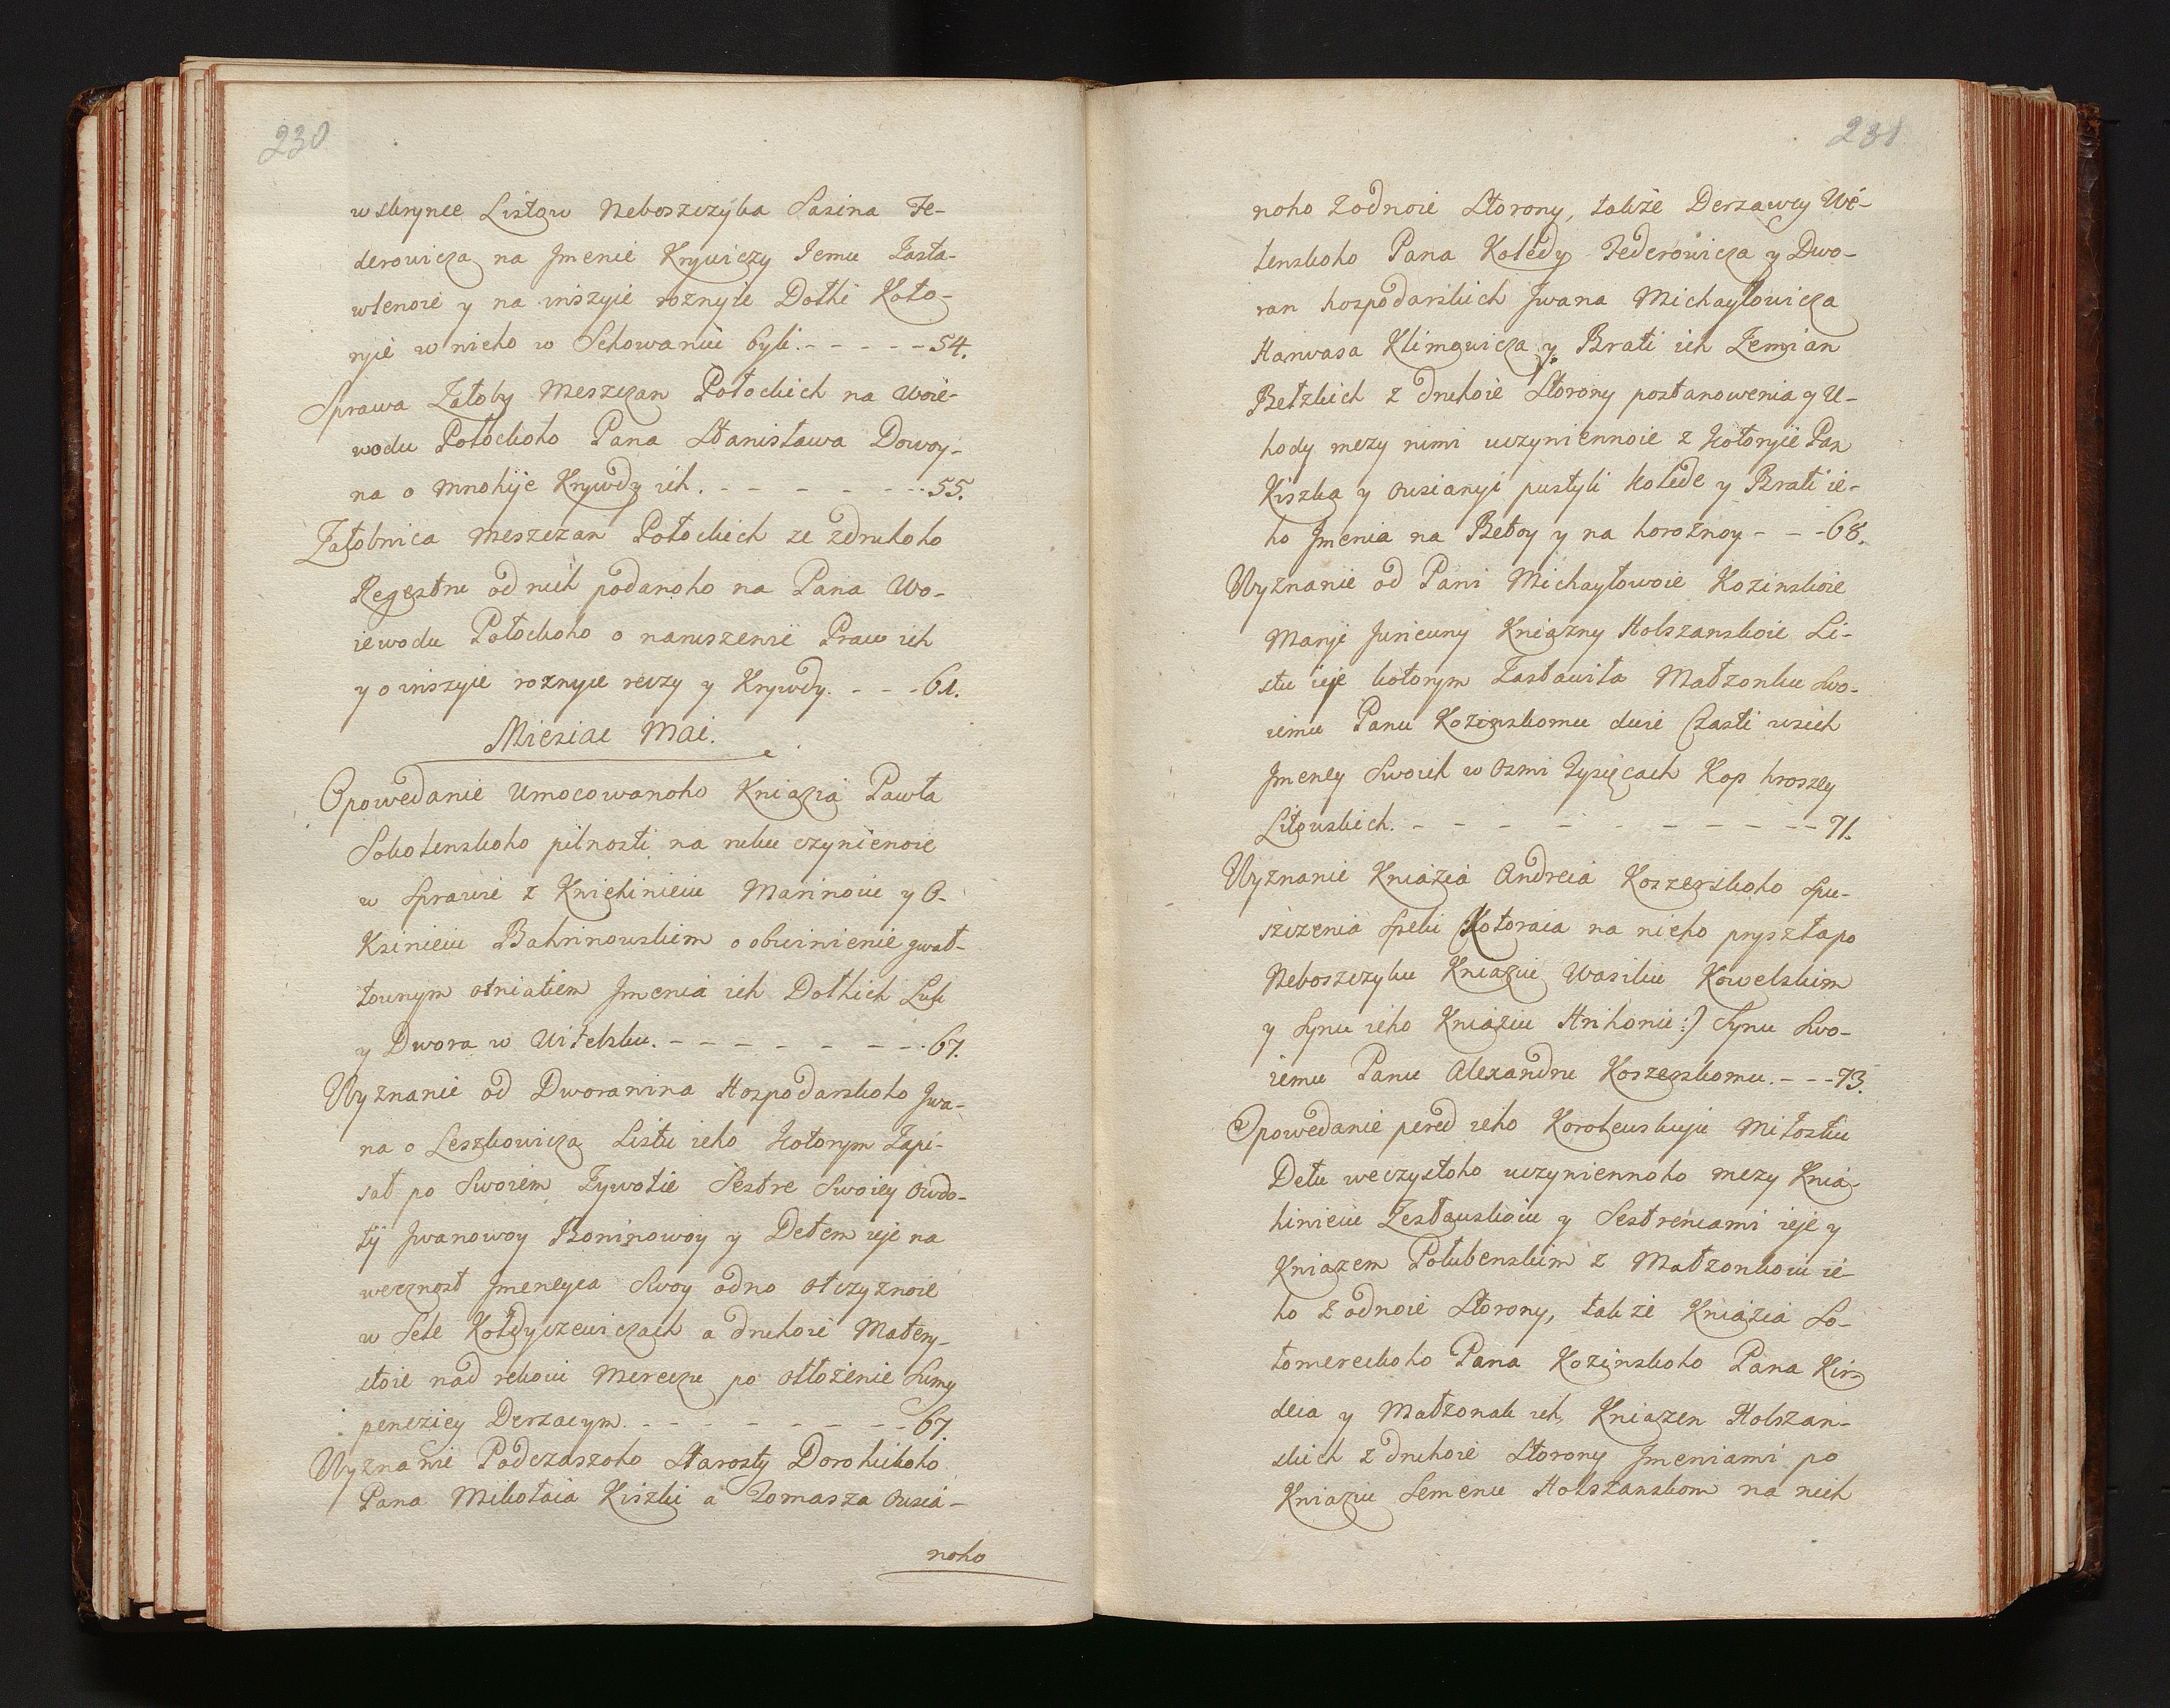 230
w skrynce Listow Neboszczyka Sasina Fe-
derowicza na Jmenie Krywiczy Jemu Zasta-
wlenoie y na inszyie roznyie Dolhi Koto-
ryie w nieho w Schowaniu byli. - - - - - 54.
Sprawa Załoby Meszczan Połockich na Woie-
wodu Połockoho Pana Stanisława Dowoy-
na o mnohije Krywdy ich. - - - - - - 55.
Załobnica Meszczan Połockich ze zdruhoho
Regestru od nich podanoho na Pana Wo-
iewodu Połockoho o naruszenie Praw ich
y o inszyie roznyie reczy y Krywdy. - - - 61.
Miesiac Mai.
Opowedanie Umocowanoho Kniazia Pawła
Sokolenskoho pilnosti na roku czynienoie
w Sprawie z Kniehinieiu Marinoiu y O-
Ksinieiu Bahrinowskim o obwinienie gwał-
townym otniatiem Jmenia ich Dolhich Luk
y Dwora w Witebsku. - - - - - - - - 67.
Wyznanie od Dworanina Hospodarskoho Jwa-
na o Leszkowicza Listu ieho Kotorym Zapi-
sał po Swoiem Zywotie Sestre Swoiey Owdo-
tij Jwanowoy Boninowoy y Detem ieje na
wecznost Jmeneyca Swoy odno otczyznoie
w Sele Kołdyczewiczach a druhoie Matery-
stoie nad rekoiu Mereczu po otłożenie Sumy
peneziey Derzacym. - - - - - - - - 67.
Wyznanie Podczaszoho Starosty Dorohickoho
Pana Mikołaia Kiszki a Tomasza Owsia-
noho
231
noho Zodnoie Storony, także Derzawcy We-
lenskoho Pana Koledy Federowicza y Dwo-
ran hospodarskich Jwana Michayłowicza
Harwasa Klimowicza y Brati ich Zemian
Betzkich z druhoie Storony postanowenia y U-
hody mezy nimi uczyniennoie z Kotoryie Pan
Kiszka y Owsianyi pustyli Kolede y Brati ie-
ho Jmenia na Bełoy y na horożnoy - - - 68.
Wyznanie od Pani Michayłowoie Kozinskoie
Maryi Juriewny Kniazny Holszanskoie Li-
stu ieje kotorym Zastawiła Małzonku Swo-
iemu Panu Kozinskomu dwie Czasti wsich
Jmeney Swoich w Osmi Tysięcach Kop hroszey
Litowskich. - - - - - - - - - - 71.
Wyznanie Kniazia Andreia Koszerskoho Spu-
szczenia Opeki (Kotoraia na nieho prysztapo
Neboszczyku Kniaziu Wasiliu Kowelskim
y Synu ieho Kniaziu Hrihoriu:) Synu Swo-
iemu Panu Alexandru Koszerskomu. - - - 73.
Opowedanie pered ieho Korolewskuju Miłostiu
Dełu weczystoho uczyniennoho mezy Knia-
hinieiu Zesławskoiu y Sestreniami ieje y
Kniazem Połubenskim z Małzonkoiu ie-
ho z odnoie Storony, tak że Kniazia So-
łomereckoho Pana Kozinskoho Pana Kir-
deia y Małzonak ich, Kniazen Holszan-
skich z druhoie Storony Jmeniami po
Kniaziu Semenu Holszanskom na nich